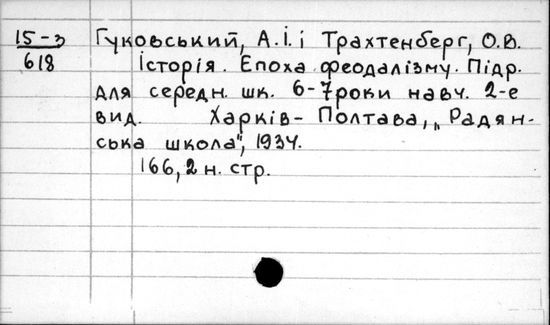 15-з
618
Гуковський, А.І. і Трахтенберг, О.В.
Історія. Епоха феодалізму. Підр.
для середн. шк. 6-7 роки навч. 2-е
вид. Харків - Полтава, „Радян-
ська школа", 1934.
166, 2 н. стр.